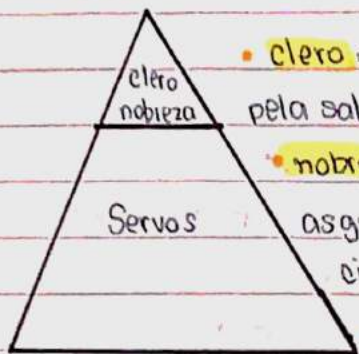 clero
nobreza
Servos
• clero
pela sal
• nobre
asg
ci